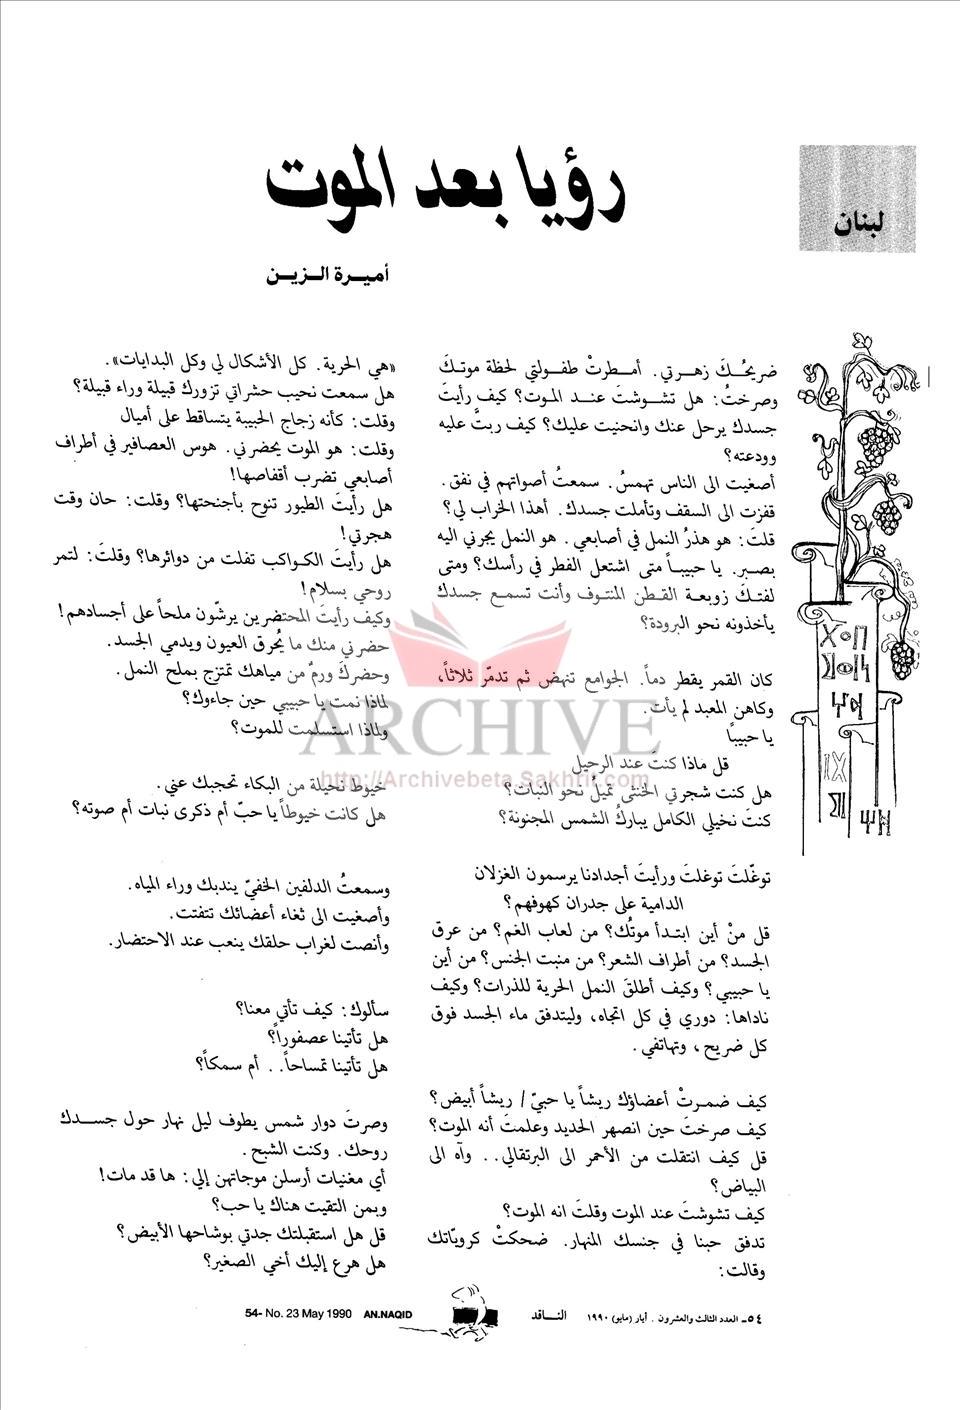 لبنان
رؤيا بعد الموت
أميرة الزين
ضريحُكَ زهرتي. أمطرتْ طفولتي لحظة موتكَ
وصرختُ: هل تشوشتَ عند الموت؟ كيف رأيتَ
جسدكَ يرحل عنك وانحنيت عليك؟ كيف ربتَّ عليه
وودعته؟
أصغيت الى الناس تهمسُ. سمعتُ أصواتهم في نفق.
قفزت الى السقف وتأملت جسدك. أهذا الخراب لي؟
قلتَ: هو هذرُ النمل في أصابعي. هو النمل يجرني اليه
بصبر. يا حبيباً متى اشتعل الفطر في رأسك؟ ومتى
لفتكَ زوبعة القطن المنتوف وأنت تسمع جسدك
يأخذونه نحو البرودة؟
كان القمر يقطر دماً. الجوامع تنهض ثم تدمّر ثلاثاً،
وكاهن المعبد لم يأت.
يا حبيباً
قل ماذا كنتَ عند الرحيل
هل كنت شجرتي الخنثى تميلُ نحو النبات؟
كنتَ نخيلي الكامل يباركُ الشمس المجنونة؟
توغّلتَ توغلتَ ورأيتَ أجدادنا يرسمون الغزلان
الدامية على جدران كهوفهم؟
قل منْ أين ابتدأ موتُك؟ من لعاب الغم؟ من عرق
الجسد؟ من أطراف الشعر؟ من منبت الجنس؟ من أين
يا حبيبي؟ وكيف أطلقَ النمل الحرية للذرات؟ وكيف
ناداها: دوري في كل اتجاه، وليتدفق ماء الجسد فوق
كل ضريح، وتهاتفي.
كيف ضمرتْ أعضاؤك ريشاً يا حبيّ / ريشاً أبيض؟
كيف صرختَ حين انصهر الحديد وعلمتَ أنه الموت؟
قل كيف انتقلت من الأحمر الى البرتقالي.. وآه الى
البياض؟
كيف تشوشتَ عند الموت وقلتَ انه الموت؟
تدفق حبنا في جنسك المنهار. ضحكتْ كروبّاتك
وقالت:
«هي الحرية. كل الأشكال لي وكل البدايات».
هل سمعت نحيب حشراتي تزورك قبيلة وراء قبيلة؟
وقلت: كأنه زجاج الحبيبة يتساقط على أميال
وقلت: هو الموت يحضرني. هوس العصافير في أطراف
أصابعي تضرب أقفاصها!
هل رأيتَ الطيور تنوح بأجنحتها؟ وقلت: حان وقت
هجرتي!
هل رأيتَ الكواكب تفلت من دوائرها؟ وقلتَ: لتمر
روحي بسلام!
وكيف رأيتَ المحتضرين يرشّون ملحاً على أجسادهم!
حضرني منك ما يُحرق العيون ويدمي الجسد.
وحضركَ ورمٌ من مياهك تمتزج بملح النمل.
لماذا نمت يا حبيبي حين جاءوك؟
ولماذا استسلمت للموت؟
خيوط نحيلة من البكاء تحجبك عني.
هل كانت خيوطاً يا حبّ أم ذكرى نبات أم صوته؟
وسمعتُ الدلفين الخفيّ يندبك وراء المياه.
وأصغيت الى ثغاء أعضائك تتفتت.
وأنصت لغراب حلقك ينعب عند الاحتضار.
سألوك: كيف تأتي معنا؟
هل تأتينا عصفوراً؟
هل تأتينا تمساحاً.. أم سمكاً؟
وصرتَ دوار شمس يطوف ليل نهار حول جسدك
روحك. وكنت الشبح.
أي مغنيات أرسلن موجاتهن إلي: ها قد مات!
وبمن التقيت هناك يا حب؟
قل هل استقبلتك جدتي بوشاحها الأبيض؟
هل هرع إليك أخي الصغير؟
ARCHIVE
http://Archivebeta.Sakhrit.com
٥٤ـ العدد الثالث والعشرون. أيار (مايو) ١٩٩٠ الناقد
54- No. 23 May 1990 AN.NAQID